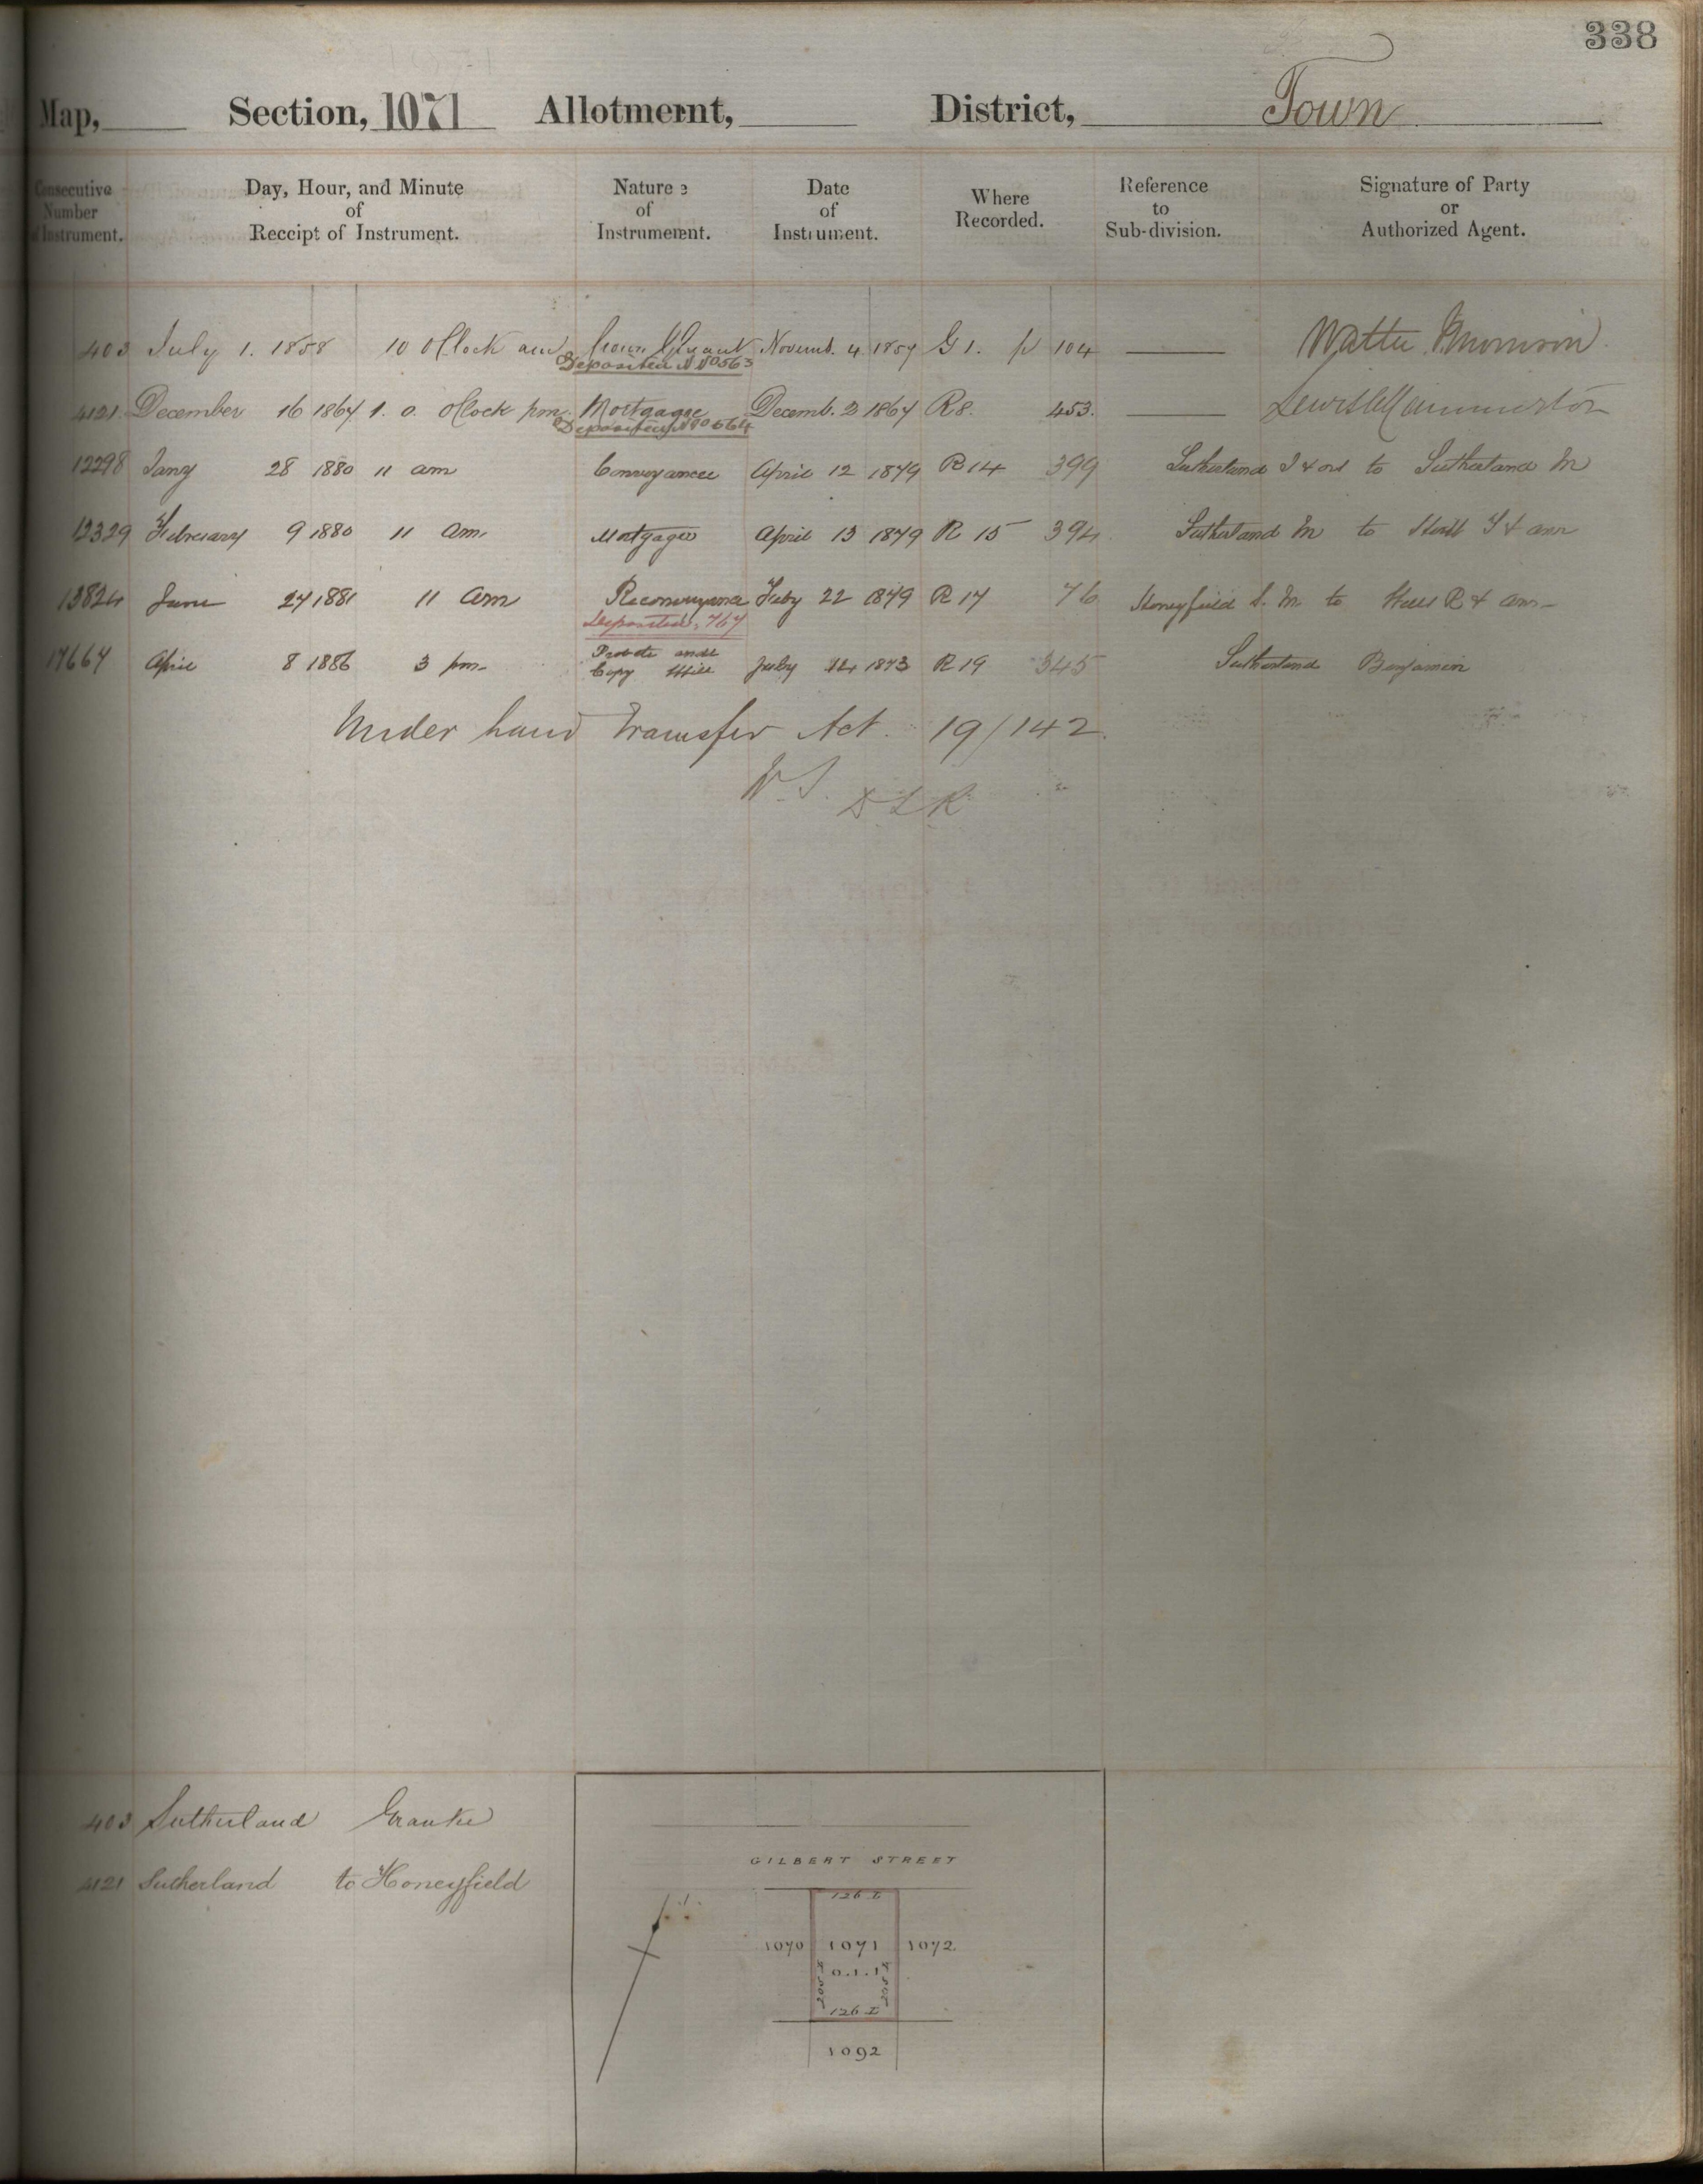 338
Map, Section, 1071 Allotment, District, Town
Consecutive Number of Instrument.
Day, Hour, and Minute of Receipt of Instrument.
Nature of Instrument.
Date of Instrument.
Where Recorded.
Reference to Sub-division.
Signature of Party or Authorized Agent.
403 July 1. 1858 10 OClock am Crown Grant Novemb. 4 1857 G 1. p 104
Deposited No 563
4121 December 16 1867 1. 0. oClock pm. Mortgage Decemb. 2 1867 R 8. 453.
Deposited No 564
12298 Jany 28 1880 11 am Conveyance April 12 1879 R 14 399 Sutherland J & ors to Sutherland M
12329 February 9 1880 11 am. Mortgage April 13 1879 R 15 394 Sutherland M to & anr
13824 June 27 1881 11 am Reconveyance July 22 1879 R 17 76 Honeyfield S. M. to R & anr
Deposited. 767
17667 April 8 1886 3 pm Probate and Copy Will July 14 1873 R 19 345 Sutherland Benjamin
Under Land Transfer Act. 19/142.
DLR
403 Sutherland Grantee
4121 Sutherland to Honeyfield
GILBERT STREET
126 L
1070 1071 1072.
0.1.1
126 L
1092